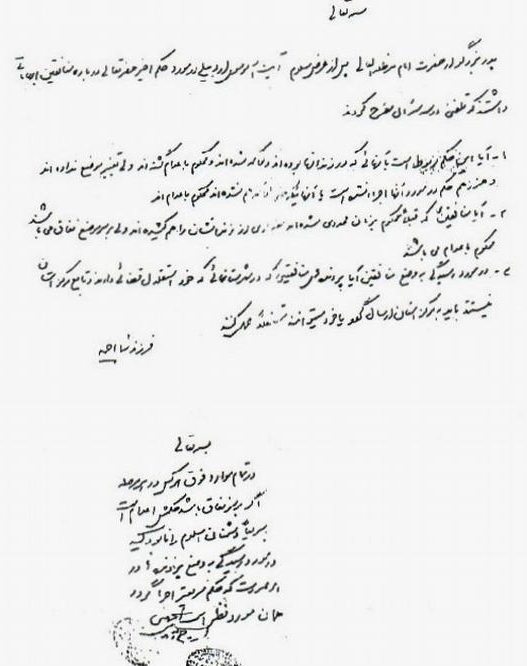 بسمه تعالی
پدر بزرگوار حضرت امام مدظله العالی پس از عرض سلام آیت الله موسوی اردبیلی در مورد حکم اخیر حضرتعالی درباره منافقین ابهاماتی
داشته‌اند که تلفنی در سه سؤال مطرح کردند
۱- آیا این حکم مربوط است به آنهائی که در زندانها بوده‌اند و محاکمه شده‌اند و محکوم به اعدام گشته‌اند ولی تغییر موضع نداده‌اند
و هنوز هم حکم در مورد آنها اجرا نشده است یا آنهائی که حتی محاکمه هم نشده‌اند محکوم به اعدامند
۲- آیا منافقین که قبلاً محکوم به زندان محدود شده‌اند و مقداری از زندانشان را هم کشیده‌اند ولی بر سر موضع نفاق می‌باشند
محکوم به اعدام می‌باشند
۳- در مورد رسیدگی به وضع منافقین آیا پرونده‌های منافقینی که در شهرستانهائی که خود استقلال قضائی دارند و تابع مرکز استان
نیستند باید به مرکز استان ارسال گردد یا خود میتوانند مستقلاً عمل کنند
فرزند شما احمد
بسمه تعالی
در تمام موارد فوق هر کس در هر مرحله
اگر بر سر نفاق باشد حکمش اعدام است
سریعاً دشمنان اسلام را نابود کنید
در مورد رسیدگی به وضع پرونده‌ها در
هر صورت که حکم سریعتر اجرا گردد
همان مورد نظر است
روح الله الموسوی الخمینی